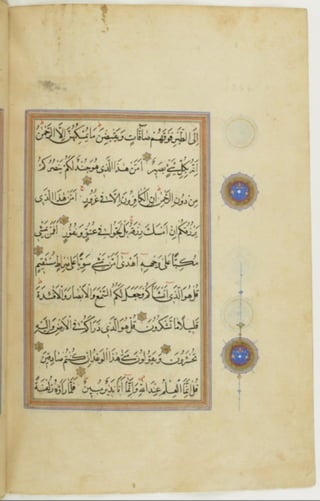 إِلَى الطَّيْرِ فَوْقَهُمْ صَافَّاتٍ وَيَقْبِضْنَ مَا يُمْسِكُهُنَّ إِلَّا الرَّحْمٰنُ
إِنَّهُ بِكُلِّ شَيْءٍ بَصِيرٌ أَمَّنْ هٰذَا الَّذِي هُوَ جُنْدٌ لَكُمْ يَنْصُرُكُمْ
مِنْ دُونِ الرَّحْمٰنِ إِنِ الْكَافِرُونَ إِلَّا فِي غُرُورٍ أَمَّنْ هٰذَا الَّذِي
يَرْزُقُكُمْ إِنْ أَمْسَكَ رِزْقَهُ بَلْ لَجُّوا فِي عُتُوٍّ وَنُفُورٍ أَفَمَنْ يَمْشِي
مُكِبًّا عَلَى وَجْهِهِ أَهْدَى أَمَّنْ يَمْشِي سَوِيًّا عَلَى صِرَاطٍ مُسْتَقِيمٍ
قُلْ هُوَ الَّذِي أَنْشَأَكُمْ وَجَعَلَ لَكُمُ السَّمْعَ وَالْأَبْصَارَ وَالْأَفْئِدَةَ
قَلِيلًا مَا تَشْكُرُونَ قُلْ هُوَ الَّذِي ذَرَأَكُمْ فِي الْأَرْضِ وَإِلَيْهِ
تُحْشَرُونَ وَيَقُولُونَ مَتَى هٰذَا الْوَعْدُ إِنْ كُنْتُمْ صَادِقِينَ
قُلْ إِنَّمَا الْعِلْمُ عِنْدَ اللّٰهِ وَإِنَّمَا أَنَا نَذِيرٌ مُبِينٌ فَلَمَّا رَأَوْهُ زُلْفَةً